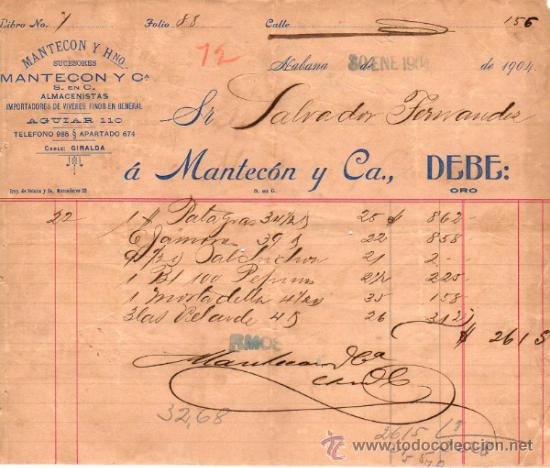 Libro No. 7 Folio 88 Calle 156
MANTECON Y HNO.
SUCESORES
MANTECON Y Cª
S. EN C.
ALMACENISTAS
IMPORTADORES DE VIVERES FINOS EN GENERAL
AGUIAR 110
TELEFONO 986 § APARTADO 674
CABLE: GIRALDA
72
Habana 30 ENE 1904 de 1904.
Sr Salvador Fernandez
á Mantecón y Ca., DEBE:
S. en C. ORO
22 1 Patagras 34 1/2 25 $ 862
6 Jamon 39 22 858
Salchichon 21 2
1 Bl 100 Pepinos 2 1/2 225
1 Mortadella 4 1/2 35 158
3 las Velarde 45 26 312
$ 2615
Mantecon y Ca
32,68
2615
www.todocoleccion.net